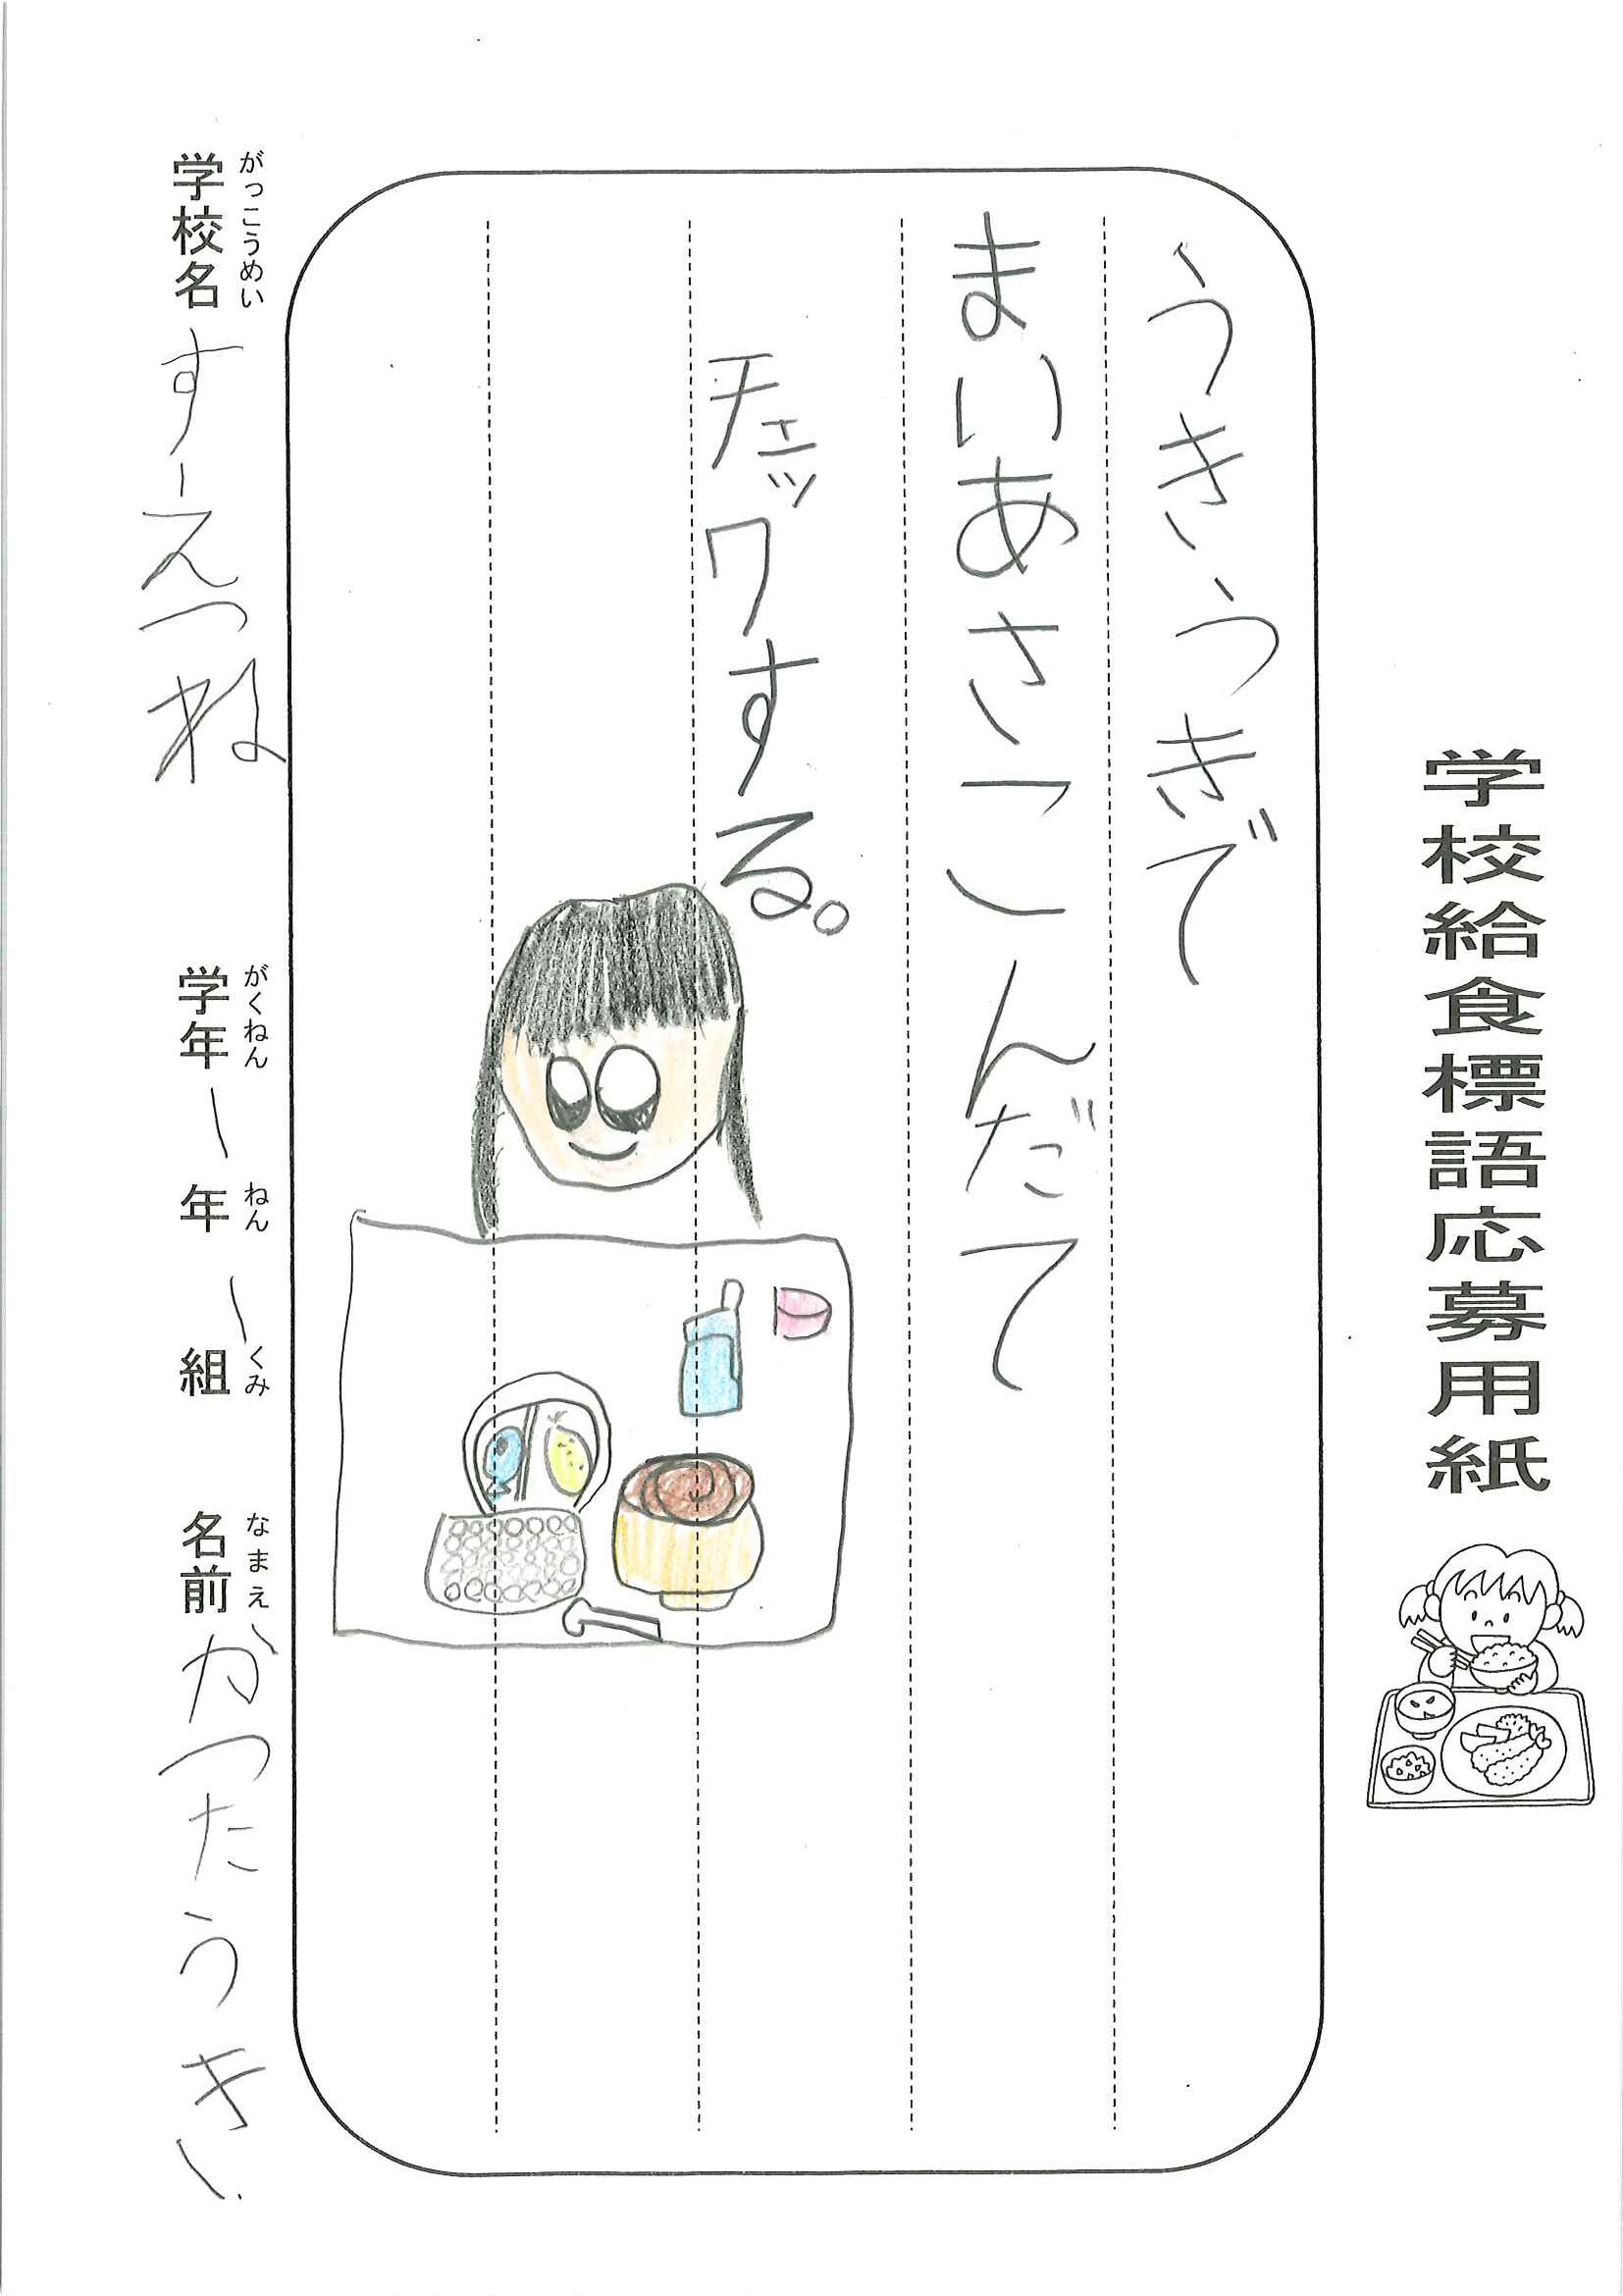 学校給食標語応募用紙
うきうきで
まいあさこんだて
チェックする。
がっこうめい がくねん ねん くみ なまえ
学校名 すえつね 学年 1 年 1 組 名前 かつたうき